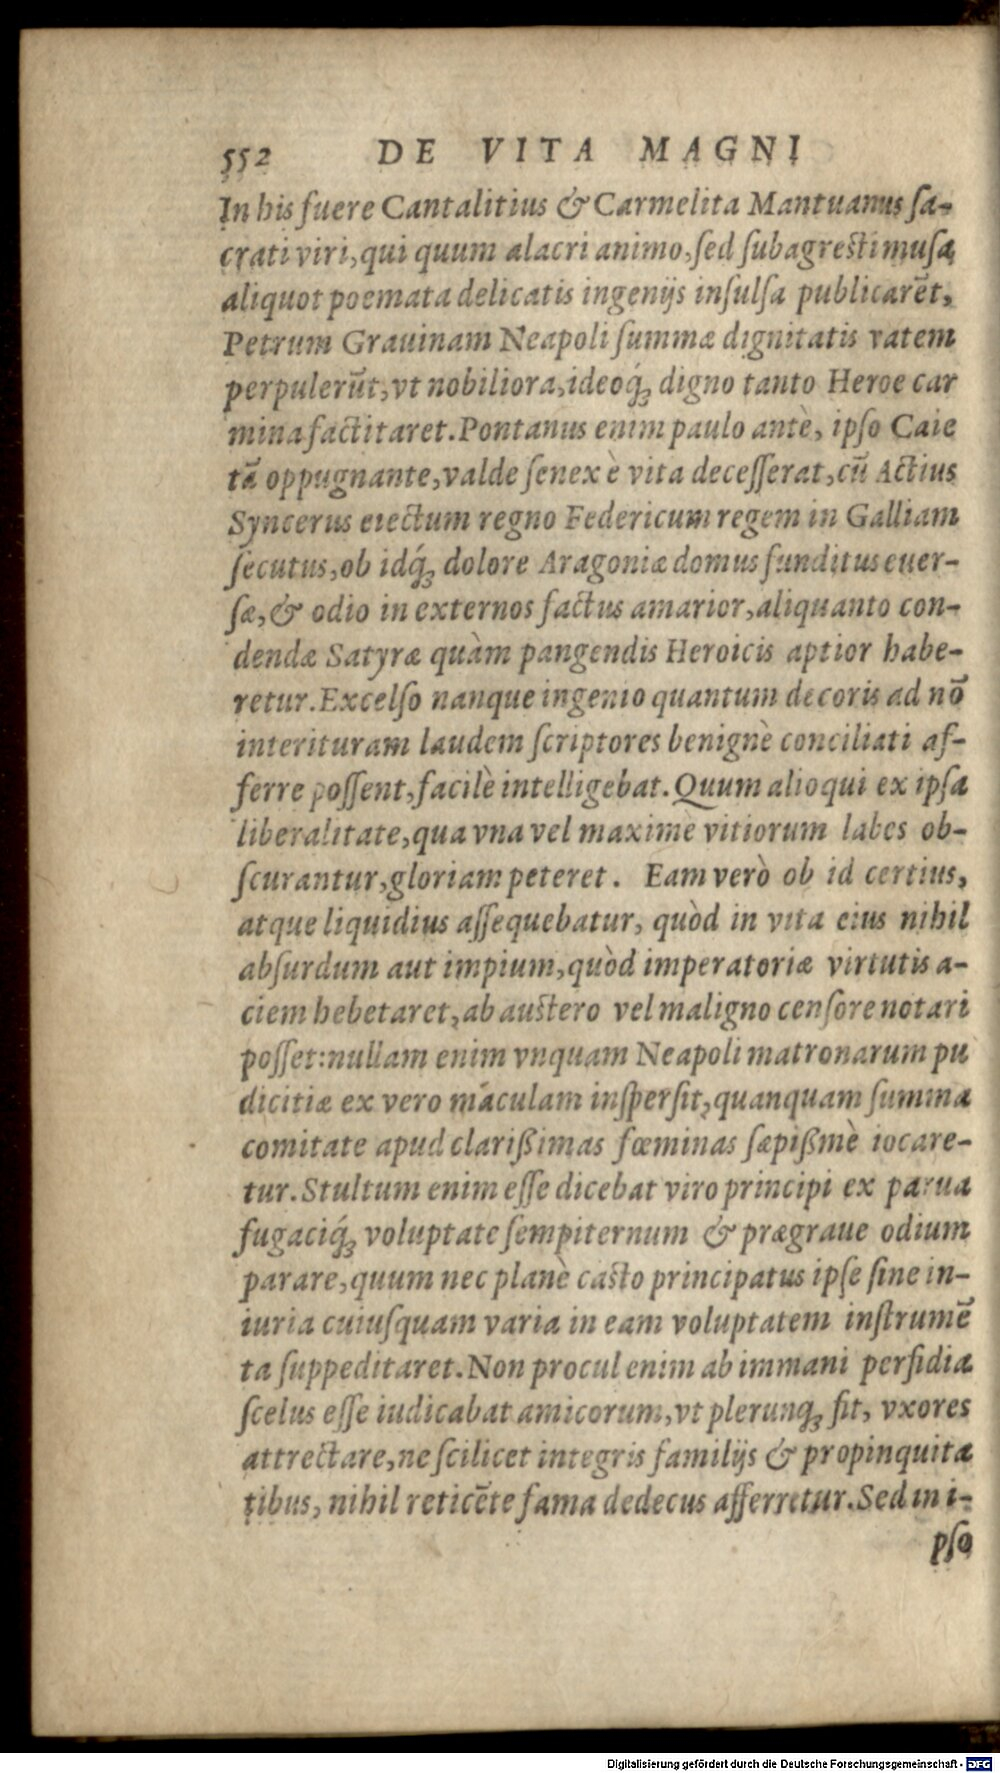 552 DE VITA MAGNI
In his fuere Cantalitius & Carmelita Mantuanus ſa-
crati viri, qui quum alacri animo, ſed ſubagreſti muſa
aliquot poemata delicatis ingenijs inſulſa publicarēt,
Petrum Grauinam Neapoli ſummæ dignitatis vatem
perpulerūt, vt nobiliora, ideoq́; digno tanto Heroe car
mina factitaret. Pontanus enim paulo antè, ipſo Caie
tā oppugnante, valde ſenex è vita deceſſerat, cū Actius
Syncerus eiectum regno Federicum regem in Galliam
ſecutus, ob idq́; dolore Aragoniæ domus funditus euer-
ſæ, & odio in externos factus amarior, aliquanto con-
dendæ Satyræ quàm pangendis Heroicis aptior habe-
retur. Excelſo nanque ingenio quantum decoris ad nō
interituram laudem ſcriptores benignè conciliati af-
ferre poſſent, facilè intelligebat. Quum alioqui ex ipſa
liberalitate, qua vna vel maximè vitiorum labes ob-
ſcurantur, gloriam peteret. Eam verò ob id certius,
atque liquidius aſſequebatur, quòd in vita eius nihil
abſurdum aut impium, quòd imperatoriæ virtutis a-
ciem hebetaret, ab auſtero vel maligno cenſore notari
poſſet: nullam enim vnquam Neapoli matronarum pu
dicitiæ ex vero máculam inſperſit, quanquam ſumma
comitate apud clarißimas fœminas ſæpißmè iocare-
tur. Stultum enim eſſe dicebat viro principi ex parua
fugaciq́; voluptate ſempiternum & prægraue odium
parare, quum nec planè caſto principatus ipſe ſine in-
iuria cuiuſquam varia in eam voluptatem inſtrumē
ta ſuppeditaret. Non procul enim ab immani perfidia
ſcelus eſſe iudicabat amicorum, vt plerunq; fit, vxores
attrectare, ne ſcilicet integris familijs & propinquita
tibus, nihil reticēte fama dedecus afferretur. Sed in i-
pſo
Digitalisierung gefördert durch die Deutsche Forschungsgemeinschaft - DFG